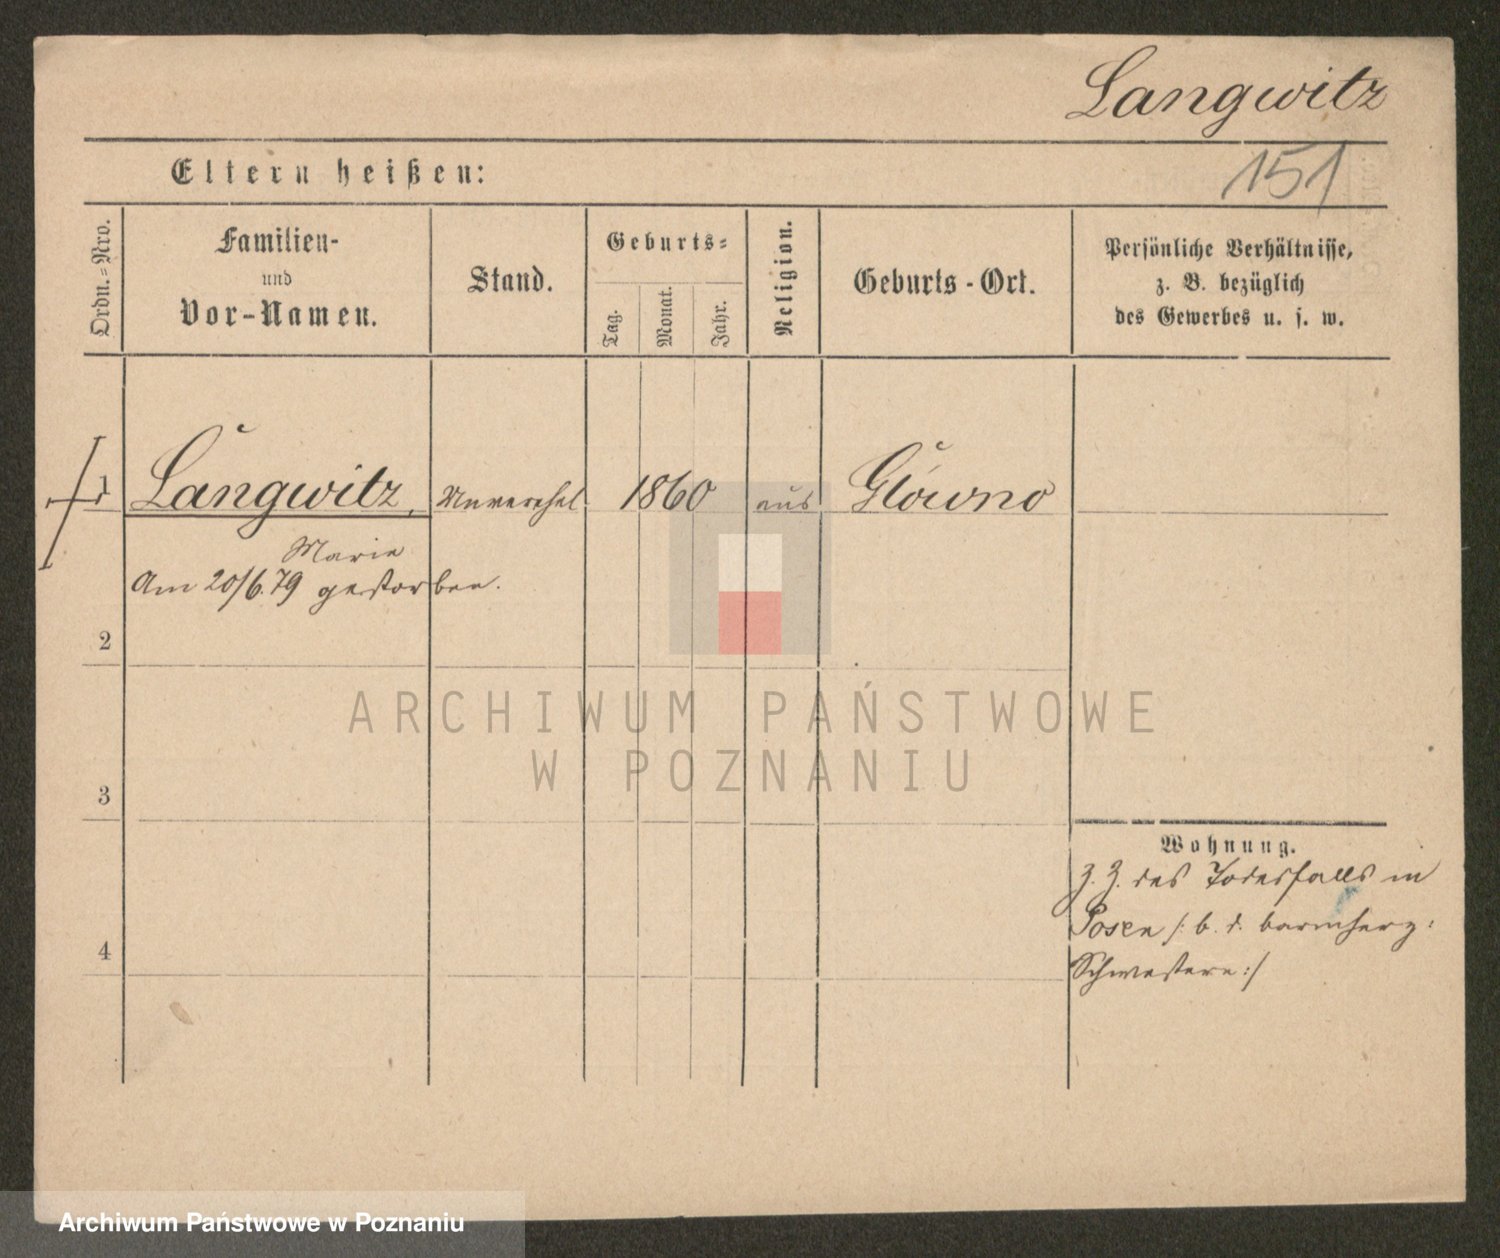 Langwitz
151
Eltern heißen:
Ordn.-Nro.
Familien-
und
Vor-Namen.
Stand.
Geburts-
Tag.
Monat.
Jahr.
Religion.
Geburts-Ort.
Persönliche Verhältnisse,
z. B. bezüglich
des Gewerbes u. s. w.
1 Langwitz, Unverehel. 1860 aus Główno
Marie
Am 20/6.79 gestorben.
2
3
4
Wohnung.
z. Z. des Todesfalls in
Posen /: b. d. barmherz:
Schwestern :/
ARCHIWUM PAŃSTWOWE
W POZNANIU
Archiwum Państwowe w Poznaniu